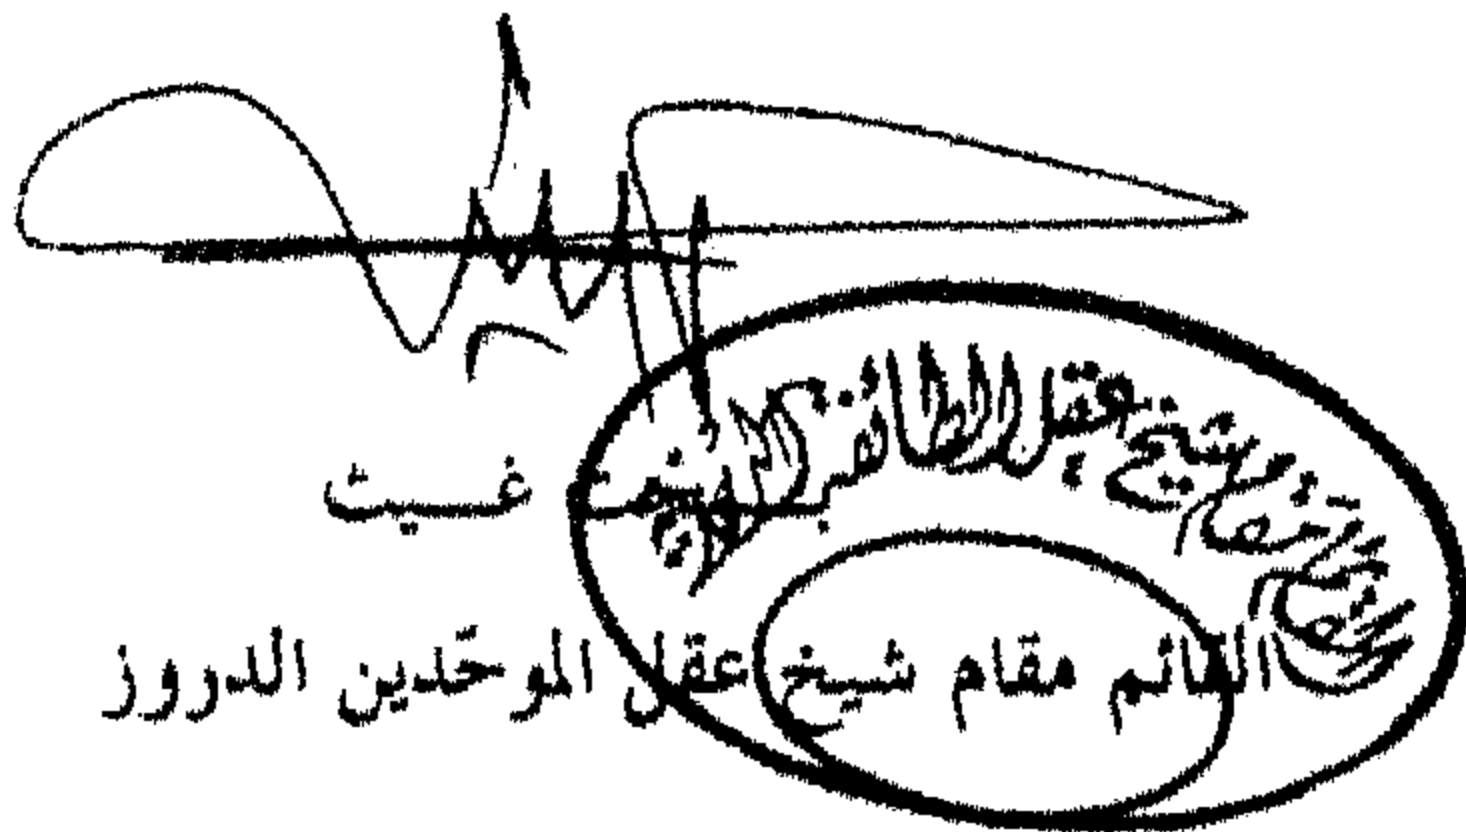 القائم مقام شيخ عقل الطائفة الدرزية
بهجت غيث
القائم مقام شيخ عقل الموحّدين الدروز